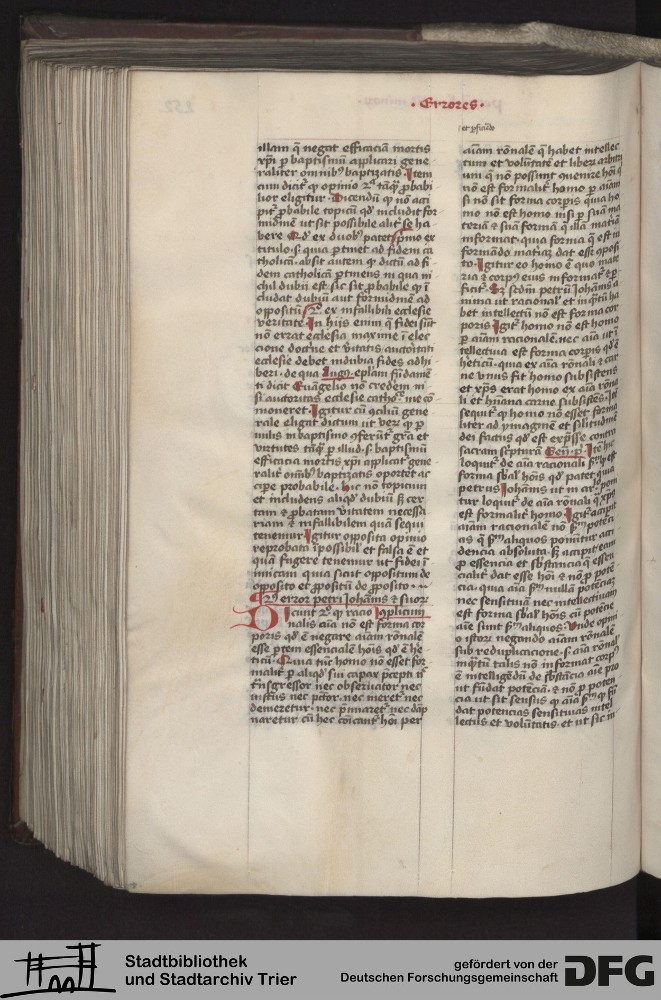 · Errores ·
illam q̄ negat efficaciā mortis
xp̄i p̲ baptismū applicari gene
raliter omnib⁹ baptizatis · Item
cum dicit̄ qꝫ opinio 2ᵃ tāqꝫ p̲babi
lior eligitur · Dicendū qꝫ nō acci
pit̄ p̲babile topicū qd̕ includit for
midinē ut sit possibile alit̄ se ha
bere
titulo · s · quia p̲tinet ad fidem ca
tholicā · absit autem qꝫ dictū ad fi
dem catholicā p̲tinens in qua ni
chil dubii est · sic sit p̲babile qꝫ ī
cludat dubiū aut formidinē ad
oppositū · 2° · ex infallibili ecclesie
veritate · In hijs enim q̄ fidei sūt
nō errat ecclesia maxime ī elec
cione doctr̄ne et v̄itatis · auctoritati
ecclesie debet indubia fides adhi
beri · de qua Augꝰ · ep̄lam fūdamē
ti dicit Euāgelio nō credem ni
si auctoritas ecclesie cathoᵉ · me cō
moneret · Igitur cū ɔciliū gene
rale eligat dictum ut veꝝ qꝫ p̲
uulis in baptismo ɔferūt̄ grā et
virtutes tāqꝫ p̲ illud · s · baptismū
efficacia mortis xp̄i applicat̄ gene
ralit̄ omib⁹ baptizatis oportet ac
cipe probabile · hic nō topicum
et includens aliqd̕ dubiū sꝫ cer
tam et p̲batam v̄itatem necessa
riam et infallibilem quā sequi
tenemur · Igitur opposita opinio
reprobata īpossibil̕ et falsa ē et
quā fugere tenemur ut fidei ī
imicam quia sicut oppositum de
opposito et p̲positū de p̲posito ·
error petri Johānis et suoꝝ
Dicunt 2° qꝫ racio ɔplicum
nalis aīa non est forma cor
poris qd̕ ē negare aīam rōnalē
esse p̲tem essencialē hoīs qd̕ ē he
ticū · Quia tūc homo nō esset for
malit̄ p̲ aliqd̕ sui capax p̲cepti n̄
tn̄sgressor nec obseruator nec
iustus nec p̄ctor · nec meret̄ nec
demeretur · nec p̄miaret̄ nec dāp
naretur cū hec cōicant̄ hōi per
aīam rōnalē q̄ habet intellec
tum et volūtatē et liberū arbitri
um q̄ nō possunt quenire hōi q̄
nō est formalit̄ homo p̲ aīam
si nō sit forma corpis quia ho
mo nō est homo nisi p̲ suā ma
teriā et suā formā q̄ illā matiā
informat · quia forma q̄ est in
formādo matiaꝫ dat esse ɔposi
to · Igitur eo homo ē quo mate
riā et corpꝰ eius informat̄ et p̲
ficit̄ · Sꝫ scdm̄ petrū Johānis a
nima ut racional̕ et inqⁿtū ha
bet intellectū nō est forma cor
poris · Igit̄ homo nō est homo
p̲ aīam racionalem · nec aīa ut ī
tellectiua est forma corpis qd̕ ē
heticū · quia ex aīa rōnali et car
ne vnus fit homo subsistens
et xp̄s erat homo ex aīa rōna
li et hūana carne subsistēs · Itē
sequit̄ qꝫ homo nō esset forma
liter ad ymaginē et silitudinē
dei factus qd̕ est exp̄sse contra
sacram scripturā Gen̄ · p° · Itē hic
loquit̄ de aīa racionali
forma sb̄al̕ hōis qd̕ patet quia
petrus Johānis ut in
tur loquit̄ de aīa rōnali q̄ xp̄s
est formalit̄ homo · Igit̄ accipit
aīam racionale nō sm̄ potēci
as q̄ sm̄ aliquos ponūtur acci
dencia absoluta · sꝫ accipit eam
p̲ essencia et sb̄stancia q̄ essen
cialit̄ dat esse hōi et nō p̲ potē
cia · quia aīa sm̄ nullā potēciaꝫ
nec sensitiuā nec intellectiuam
est forma sb̄al̕ hōis cū potēne
aīe sunt sm̄ aliquos · Unde opini
o istoꝝ negando aīam rōnalē
sub reduplicacione · s · aīa rōnal̕
inqⁿtū talis nō informat corpꝰ
ē intelligēdū de sb̄stācia aīe pro
ut fūdat potēciā · et nō p̲ poten
cia ut sit sensus qꝫ aīa sm̄ qꝫ fū
dat potencias sensitiuas intel
lectūs et volūtatis · et ut sic in
Stadtbibliothek
und Stadtarchiv Trier
gefördert von der
Deutschen Forschungsgemeinschaft
DFG